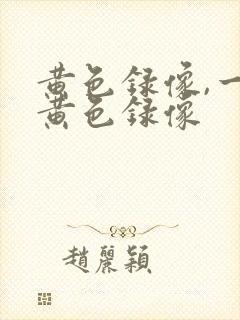 黄色録像,一
黄色録像
趙麗穎